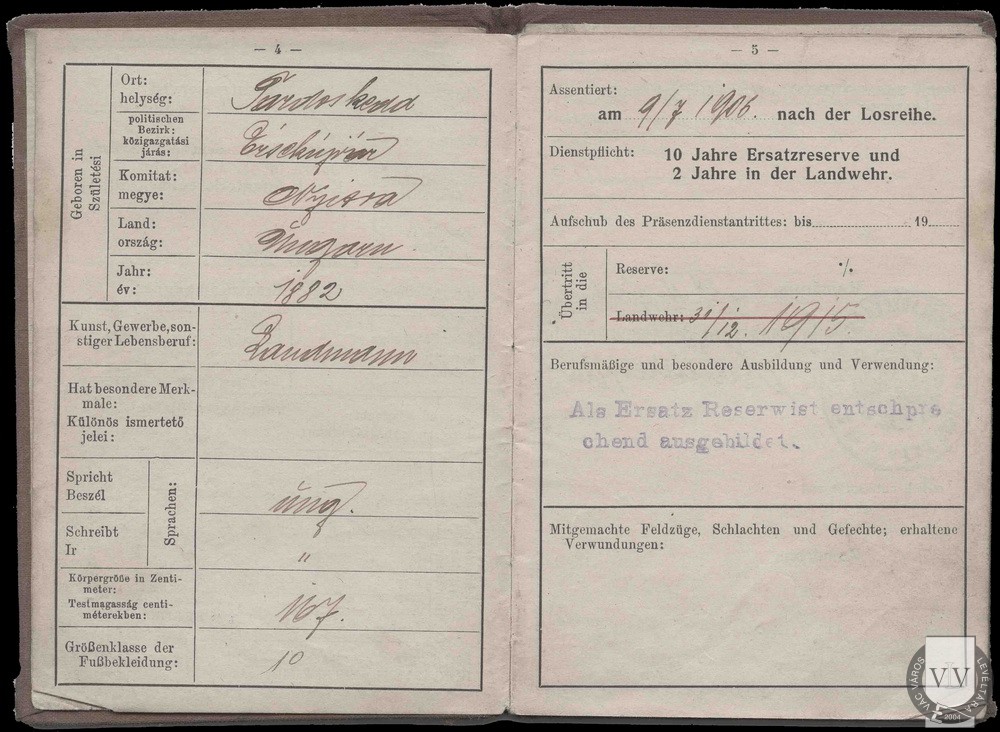 — 4 —
Geboren in
Születési
Ort:
helység:
Tardoskedd
politischen
Bezirk:
közigazgatási
járás:
Érsekújvár
Komitat:
megye:
Nyitra
Land:
ország:
Ungarn
Jahr:
év:
1882
Kunst, Gewerbe, son-
stiger Lebensberuf:
Landmann
Hat besondere Merk-
male:
Különös ismertető
jelei:
Spricht
Beszél
Schreibt
Ir
Sprachen:
ung.
"
Körpergröße in Zenti-
meter:
Testmagasság centi-
méterekben:
167.
Größenklasse der
Fußbekleidung:
10
— 5 —
Assentiert:
am 9/7 1906. nach der Losreihe.
Dienstpflicht: 10 Jahre Ersatzreserve und
2 Jahre in der Landwehr.
Aufschub des Präsenzdienstantrittes: bis 19
Übertritt
in die
Reserve: ./.
Landwehr: 31/12. 1915.
Berufsmäßige und besondere Ausbildung und Verwendung:
Als Ersatz Reserwist entschpre
chend ausgebildet.
Mitgemachte Feldzüge, Schlachten und Gefechte; erhaltene
Verwundungen:
VÁC VÁROS LEVÉLTÁRA
VLV
2004